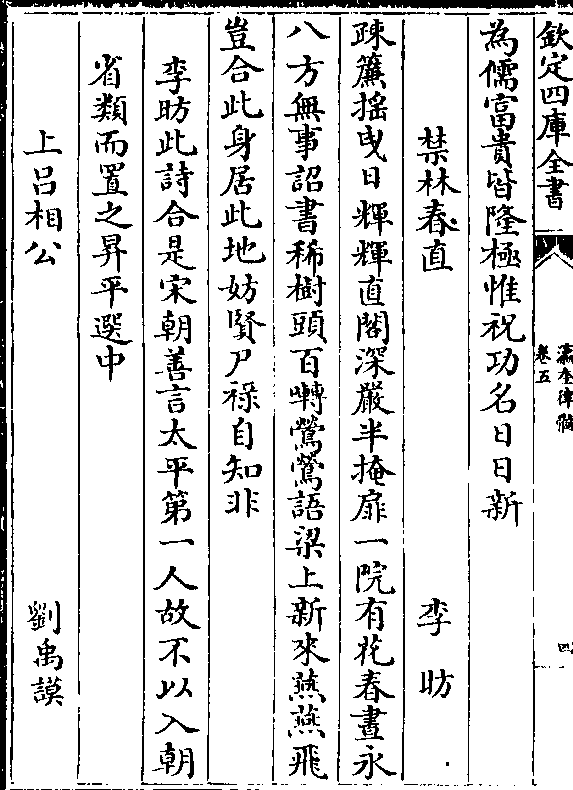 欽定四庫全書
瀛奎律髓
卷五
四
為儒富貴皆隆極惟祝功名日日新
禁林春直 李昉
疎簾揺曳日輝輝直閣深嚴半掩扉一院有花春晝永
八方無事詔書稀樹頭百囀鶯鶯語梁上新來燕燕飛
豈合此身居此地妨賢尸禄自知非
李昉此詩合是宋朝善言太平第一人故不以入朝
省類而置之昇平選中
上吕相公 劉禹謨